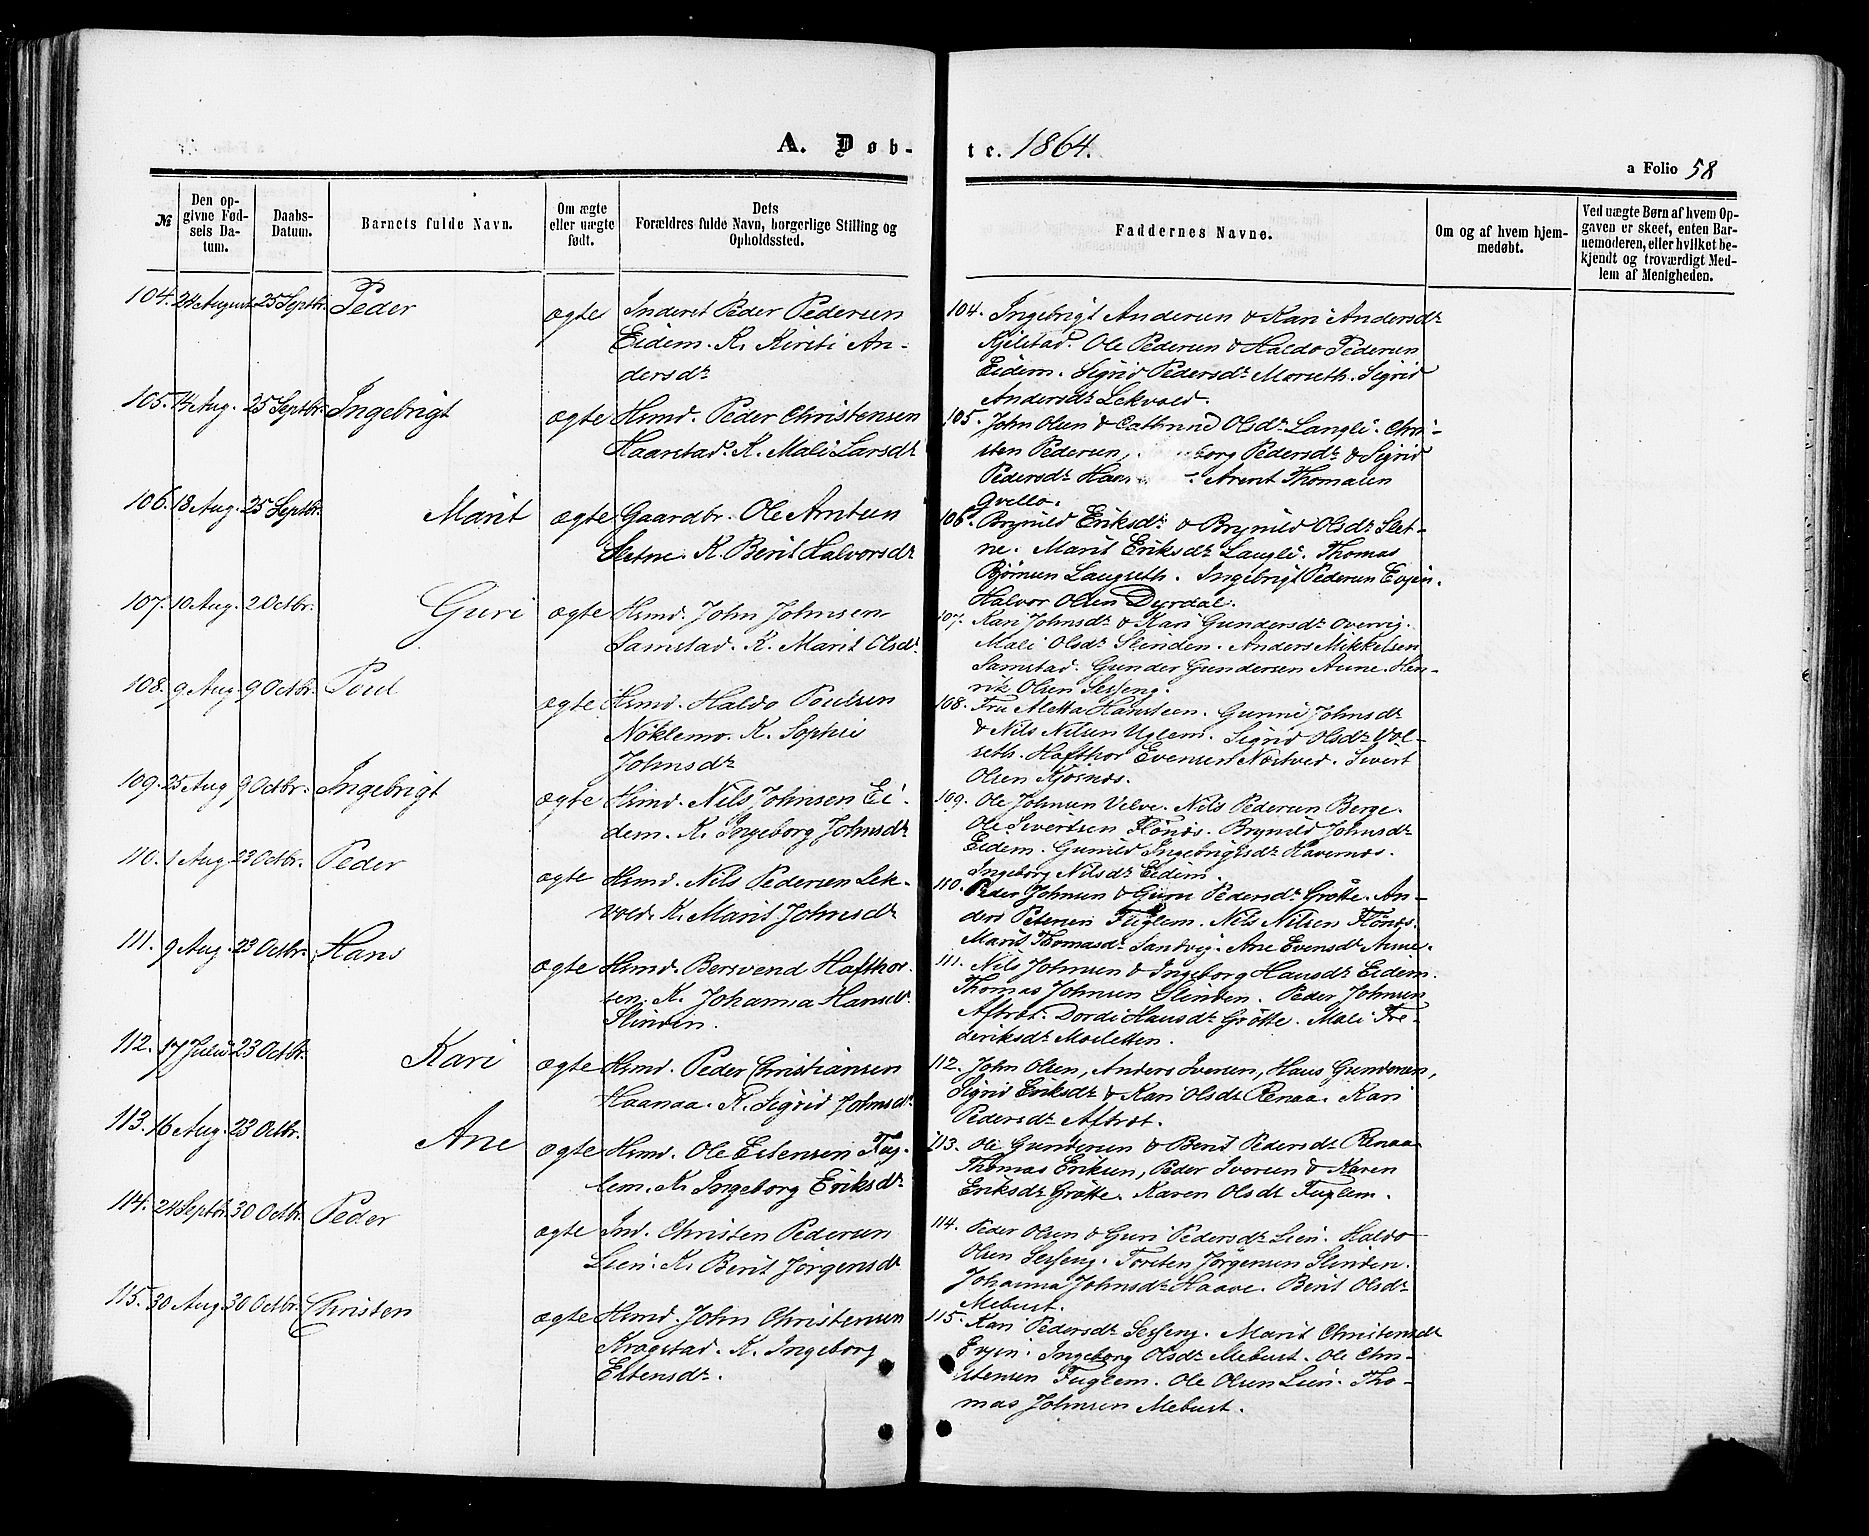 A. Døb-
№
Den op-
givne Fød-
sels Da-
tum.
Daabs-
Datum.
Barnets fulde Navn.
Om ægte
eller uægte
født.
Dets
Forældres fulde Navn, borgerlige Stilling og
Opholdssted.
104. 24 August 25 Septbr. Peder ægte Inderst Peder Pedersen
Eidem. K. Kirsti An-
dersdr
105. 14 Aug. 25 Septbr. Ingebrigt ægte Hsmd. Peder Christensen
Haarstad. K. Mali Larsdr
106. 18 Aug. 25 Septbr. Marit ægte Gaardbr. Ole Arntsen
Sletne. K. Berit Halvorsdr
107. 10 Aug. 2 Octbr. Guri ægte Hsmd. John Johnsen
Samstad. K. Marit Olsdr
108. 9 Aug. 9 Octbr. Poul ægte Hsmd. Haldo Poulsen
Nöklemo. K. Sophie
Johnsdr
109. 25 Aug 9 Octbr. Ingebrigt ægte Hsmd. Nils Johnsen Ei-
dem. K. Ingeborg Johnsdr
110. 1 Aug 23 Octbr. Peder ægte Hsmd. Nils Pedersen Lek-
vold. K. Marit Johnsdr
111. 9 Aug. 23 Octbr. Hans ægte Hsmd. Bersvend Hafthor-
sen. K. Johanna Hansdr
Slinden.
112. 17 Juli 23 Octbr Kari ægte Hsmd. Peder Christiansen
Haanaa. K. Sigrid Johnsdr
113. 16 Aug. 23 Octbr. Ane ægte Hsmd. Ole Estensen Fug-
lem. K. Ingeborg Eriksdr
114. 24 Septbr. 30 Octbr. Peder ægte Ind. Christen Pedersen
Lien. K. Berit Jörgensdr
115. 30 Aug. 30 Octbr. Christen ægte Hsmd. John Christensen
Kragstad. K. Ingeborg
Estensdr.
te. 1864.
a Folio 58
Faddernes Navne.
Om og af hvem hjem-
medøbt.
Ved uægte Børn af hvem Op-
gaven er skeet, enten Bar-
nemoderen, eller hvilket be-
kjendt og troværdigt Med-
lem af Menigheden.
104. Ingebrigt Andersen & Kari Andersdr
Kjelstad. Ole Pedersen & Haldo Pedersen
Eidem. Sigrid Pedersdr Marseth. Sigrid
Andersdr Lekvold.
105. John Olsen & Cathrine Olsdr Langli. Chri-
sten Pedersen, Pedersdr & Sigrid
Pedersdr Arent Thomasen
Qvello.
106. Brynild Eriksdr & Brynild Olsdr Slet-
ne. Marit Eriksdr Langli. Thomas
Björnsen Langseth. Ingebrigt Pedersen Evjen.
Halvor Olsen Dyrdal.
107. Kari Johnsdr & Kari Gundersdr Overvig.
Mali Olsdr Slinden. Anders Mikkelsen
Samstad. Gunder Gundersen Aune. Hen-
rik Olsen Sesseng.
108. Fru Aletta Hansteen. Gunni Johnsdr
& Nils Nilsen Uglem. Sigrid Olsdr Vol-
seth. Hafthor Evensen Næstved. Sivert
Olsen Kjösnæs.
109. Ole Johnsen Velve. Nils Pedersen Berge.
Ole Sivertsen Flönæs. Brynild Johnsdr
Eidem. Gunild Ingebrigtsdr Havernæs.
Ingeborg Nilsdr Eidem.
110. Peder Johnsen & Guru Pedersdr Grötte. An-
ders Petersen Fuglem. Nils Nilsen Flönæs.
Marit Thomasdr Sandvig. Ane Evensdr Aune.
111. Nils Johnsen & Ingeborg Hansdr Eidem.
Thomas Johnsen Slinden. Peder Johnsen
Aftrét. Dordi Hansdr Grötte. Mali Fre-
deriksdr Mosletten.
112. John Olsen, Anders Iversen, Hans Gundersen,
Sigrid Eriksdr & Kari Olsdr Renaa. Kari
Pedersdr Aftrét.
113. Ole Gundersen & Berit Pedersdr Renaa
Thomas Eriksen, Peder Iversen & Karen
Eriksdr Grötte. Karen Olsdr Fuglem.
114. Peder Olsen & Guri Pedersdr Lien. Haldo
Olsen Sesseng. Torsten Jörgensen Slinden.
Johanna Johnsdr Haave. Berit Olsdr
Mebust.
115. Kari Pedersdr Sesseng. Marit Christensdr
Evjen. Ingeborg Olsdr Mebust. Ole Chri-
stensen Fuglem. Ole Olsen Lien. Tho-
mas Johnsen Mebust.